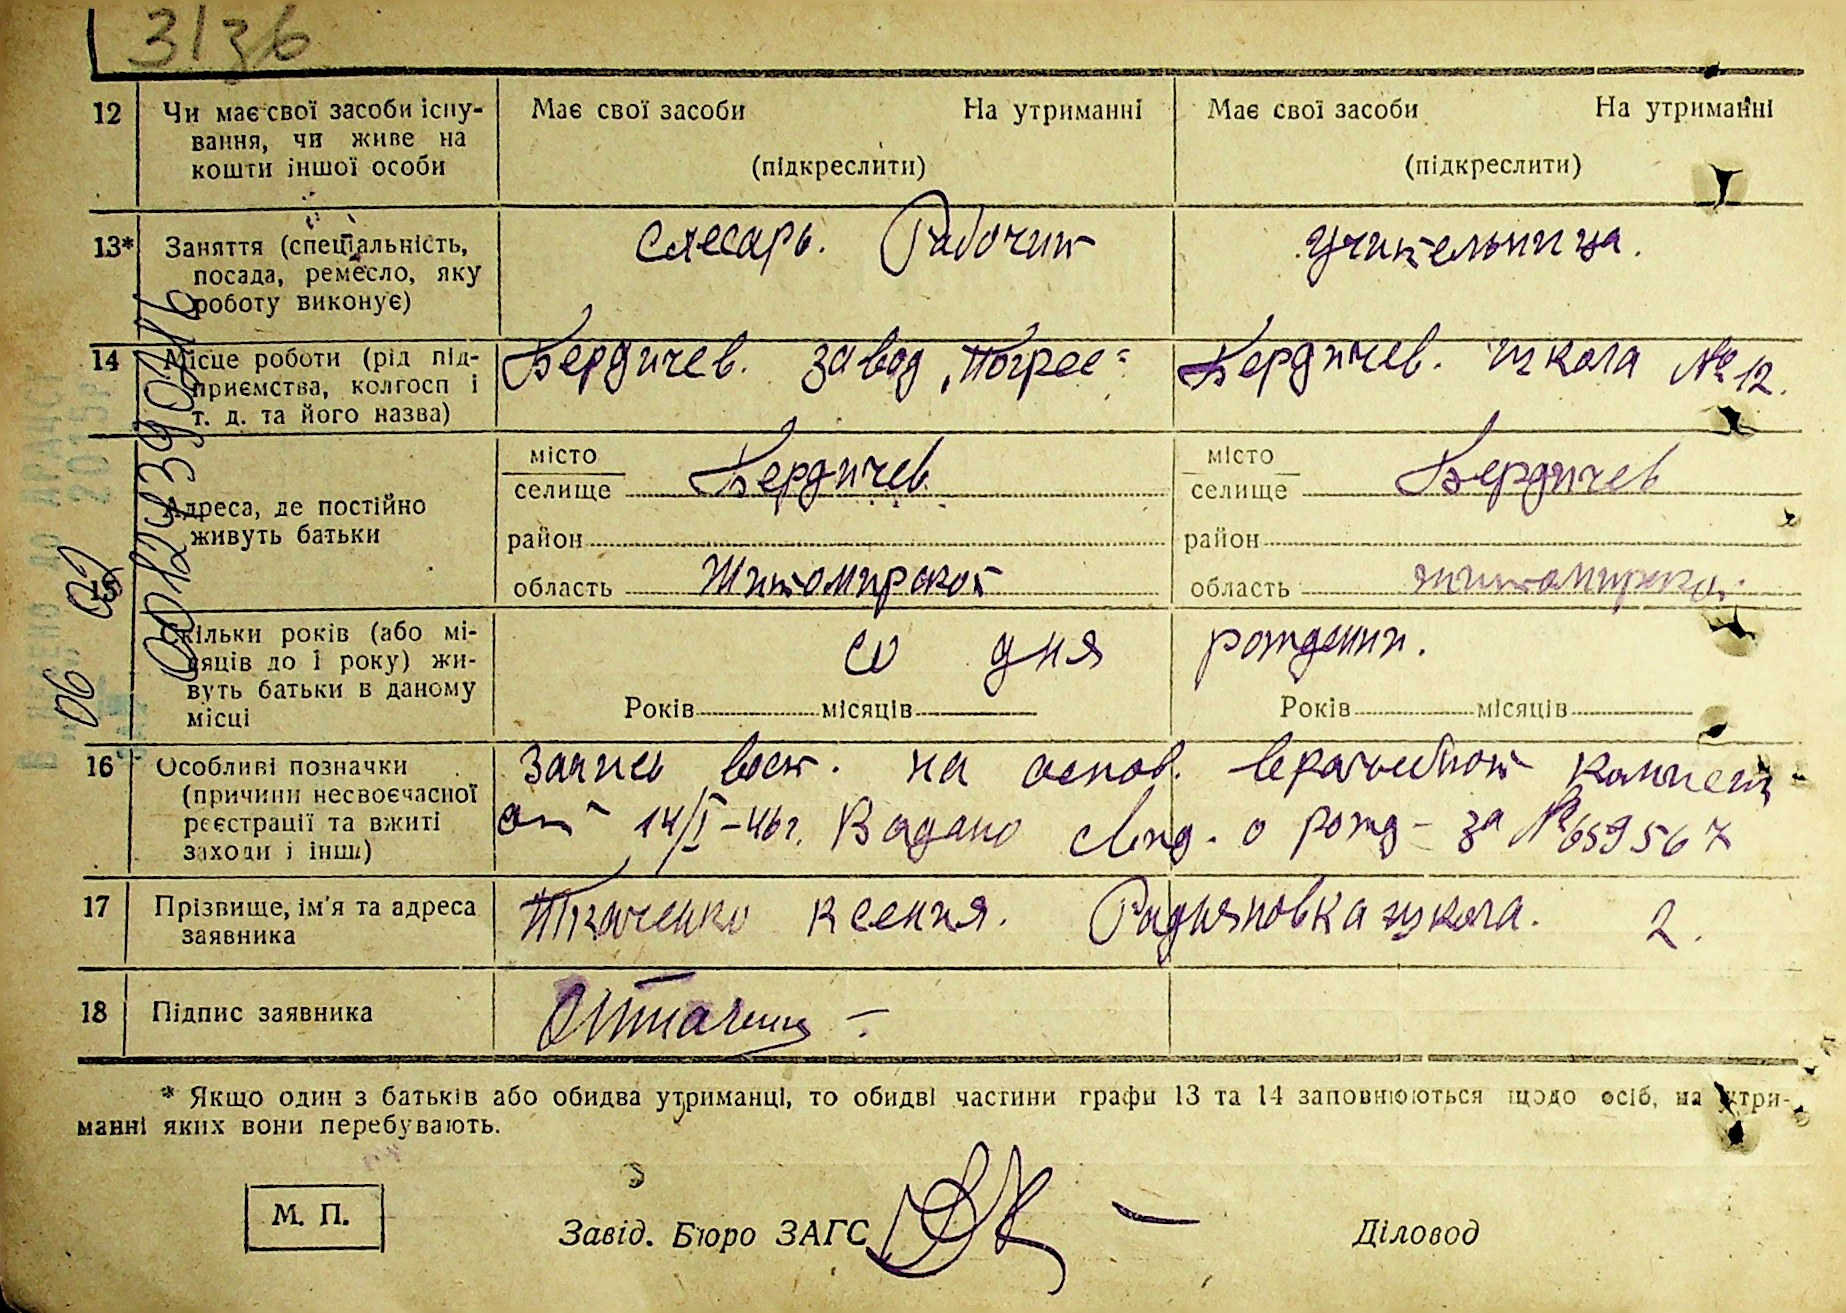 3136
12 Чи має свої засоби існу- Має свої засоби На утриманні Має свої засоби На утриманні
вання, чи живе на
кошти іншої особи (підкреслити) (підкреслити)
13* Заняття (спеціальність, слесарь. Рабочий учительница.
посада, ремесло, яку
роботу виконує)
14 Місце роботи (рід під- Бердичев. завод „Погрес" Бердичев. школа № 12.
приємства, колгосп і
т. д. та його назва)
місто місто
селище Бердичев селище Бердичев
Адреса, де постійно
живуть батьки район район
область Житомирской область житомирской
15
Скільки років (або мі- со дня рождения.
сяців до 1 року) жи-
вуть батьки в даному Років місяців Років місяців
місці
16 Особливі позначки Запись вост. на основ. врачебной
(причини несвоєчасної
реєстрації та вжиті от 14/I-46г. Выдано о рожд- за № 659567
заходи і інші)
17 Прізвище, ім'я та адреса Ткаченко Ксения. школа. 2.
заявника
18 Підпис заявника
* Якщо один з батьків або обидва утриманці, то обидві частини графи 13 та 14 заповнюються щодо осіб, на утри-
манні яких вони перебувають.
М. П.
Завід. Бюро ЗАГС Діловод